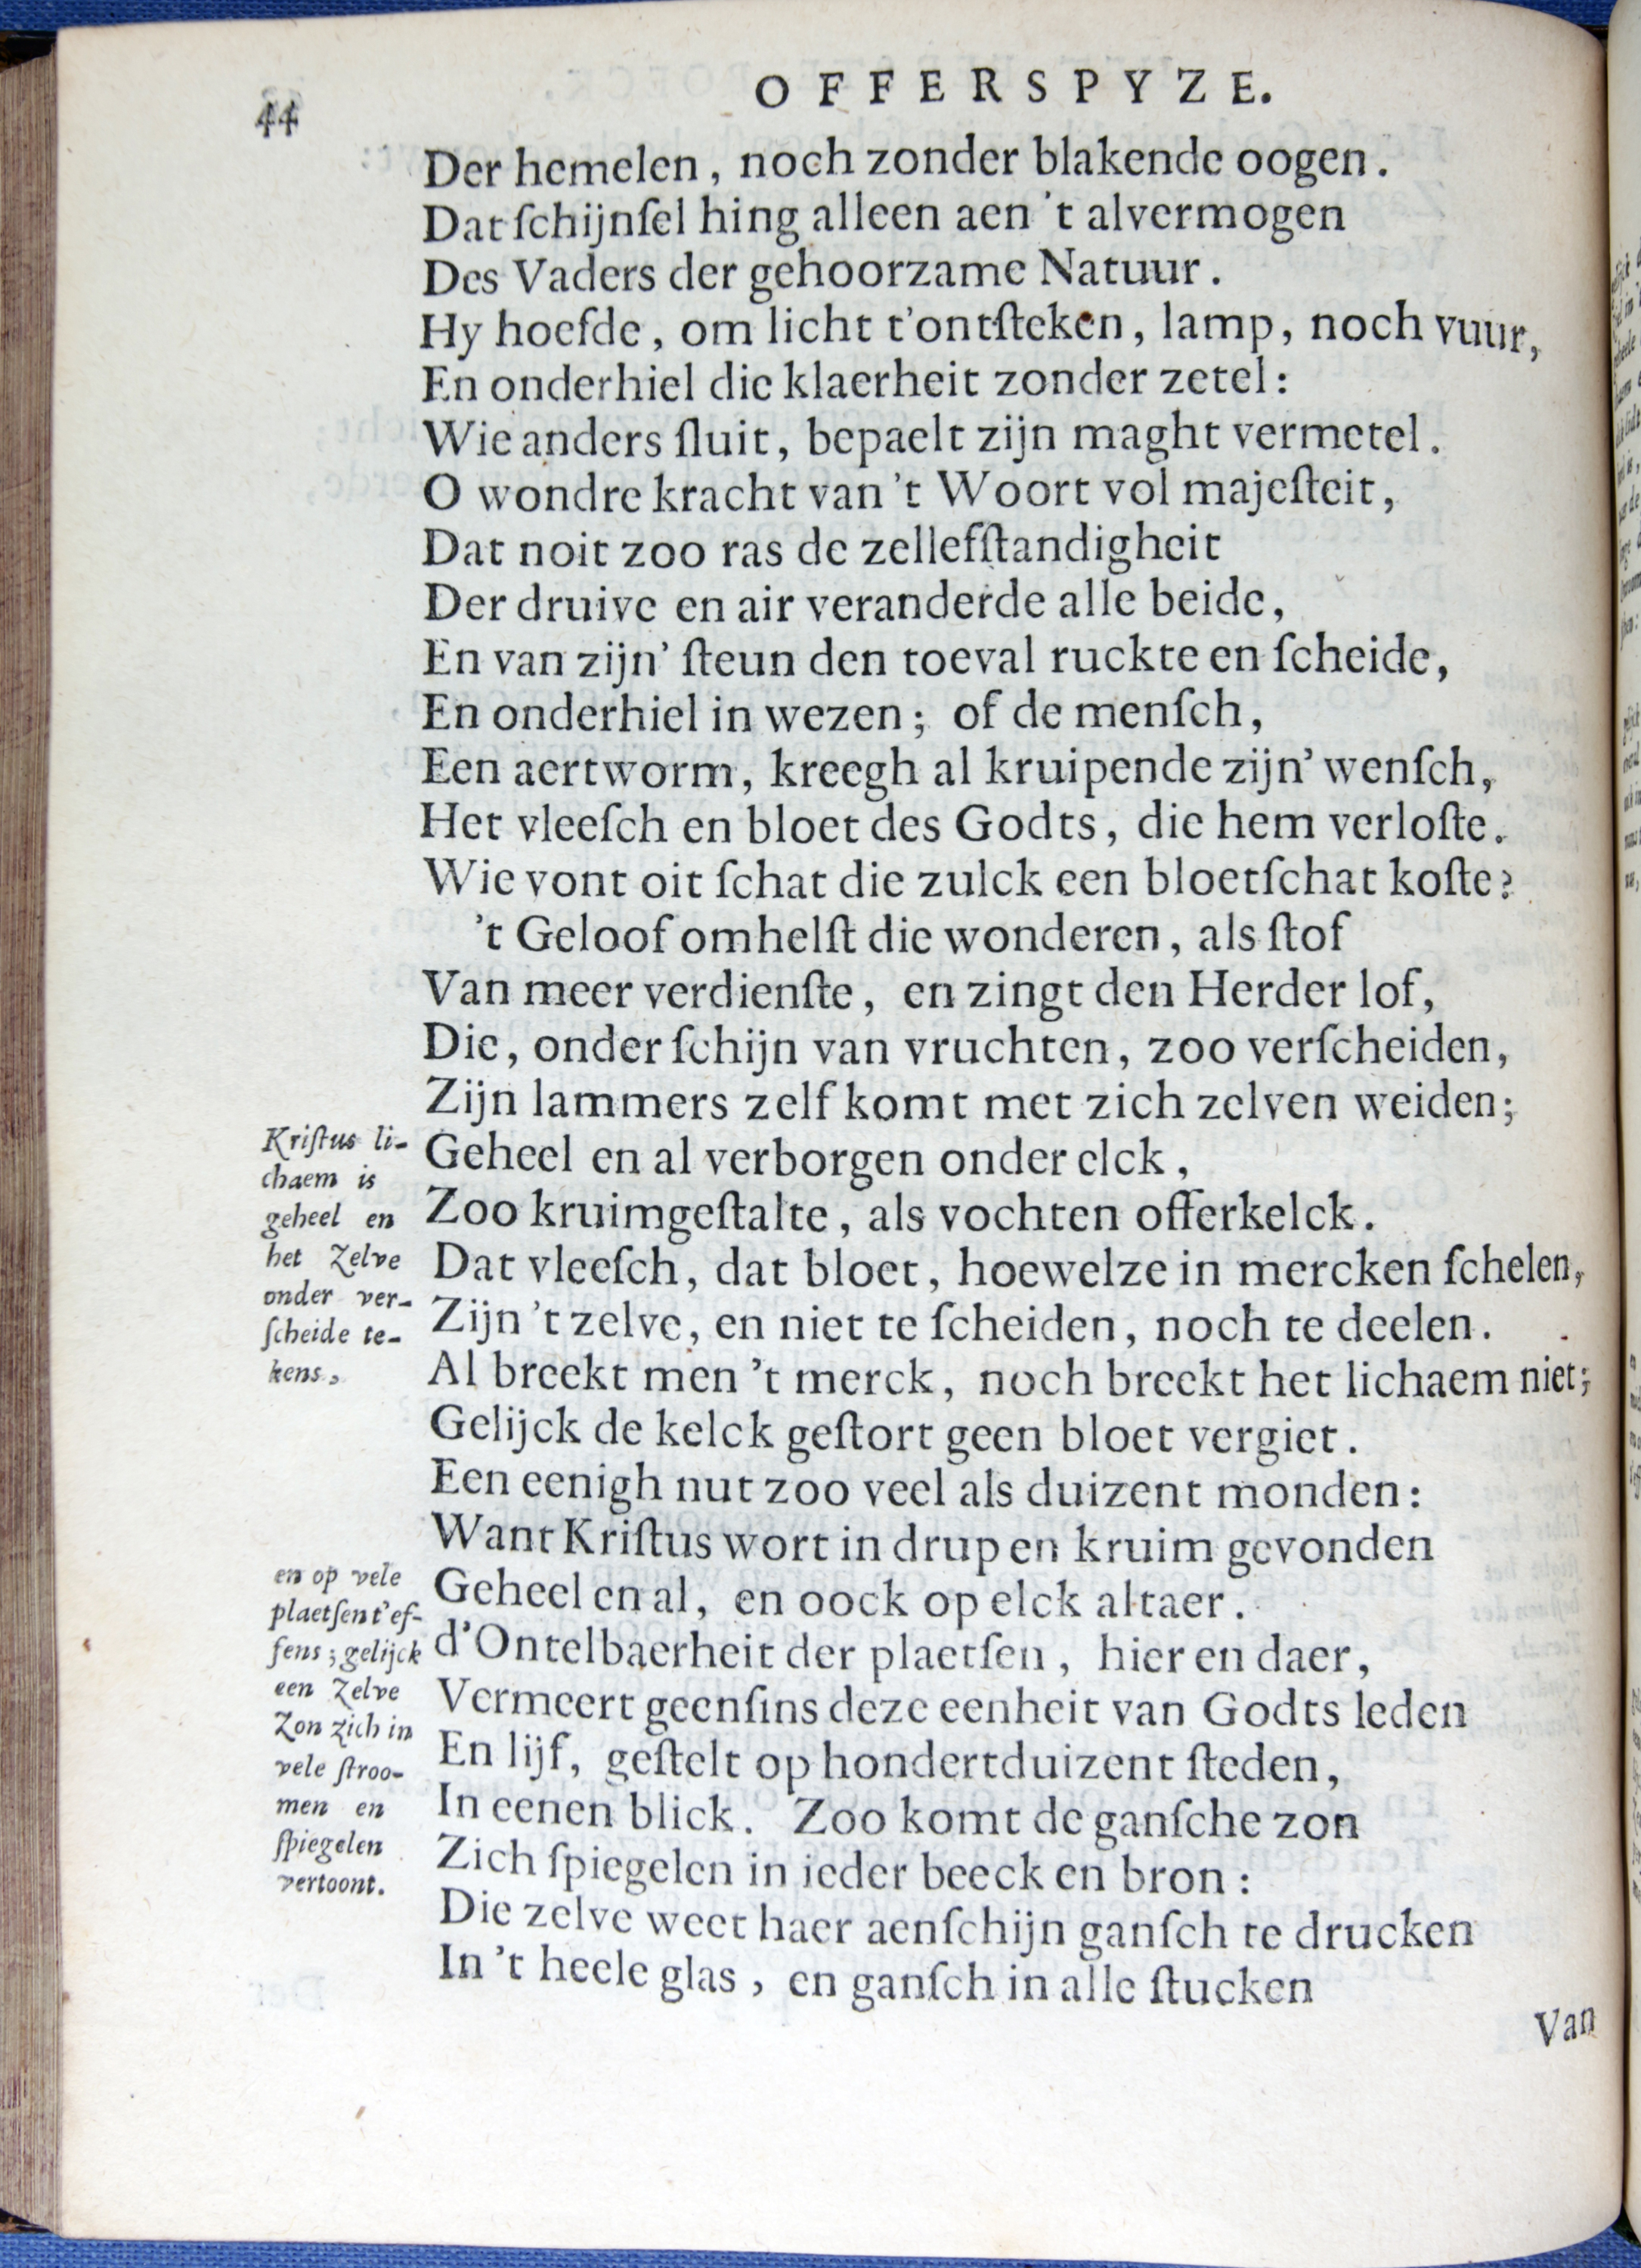 44
OFFERSPYZE.
Der hemelen, noch zonder blakende oogen.
Dat ſchijnſel hing alleen aen 't alvermogen
Des Vaders der gehoorzame Natuur.
Hy hoefde, om licht t'ontſteken, lamp, noch vuur,
En onderhiel die klaerheit zonder zetel:
Wie anders ſluit, bepaelt zijn maght vermetel.
O wondre kracht van 't Woort vol majeſteit,
Dat noit zoo ras de zellefſtandigheit
Der druive en air veranderde alle beide,
En van zijn' ſteun den toeval ruckte en ſcheide,
En onderhiel in wezen; of de menſch,
Een aertworm, kreegh al kruipende zijn' wenſch,
Het vleeſch en bloet des Godts, die hem verloſte.
Wie vont oit ſchat die zulck een bloetſchat koſte?
't Geloof omhelſt die wonderen, als ſtof
Van meer verdienſte, en zingt den Herder lof,
Die, onder ſchijn van vruchten, zoo verſcheiden,
Zijn lammers zelf komt met zich zelven weiden;
Geheel en al verborgen onder elck,
Zoo kruimgeſtalte, als vochten offerkelck.
Dat vleeſch, dat bloet, hoewelze in mercken ſchelen,
Zijn 't zelve, en niet te ſcheiden, noch te deelen.
Al breekt men 't merck, noch breekt het lichaem niet;
Gelijck de kelck geſtort geen bloet vergiet.
Een eenigh nut zoo veel als duizent monden:
Want Kriſtus wort in drup en kruim gevonden
Geheel en al, en oock op elck altaer.
d'Ontelbaerheit der plaetſen, hier en daer,
Vermeert geenſins deze eenheit van Godts leden
En lijf, geſtelt op hondertduizent ſteden,
In eenen blick. Zoo komt de ganſche zon
Zich ſpiegelen in ieder beeck en bron:
Die zelve weet haer aenſchijn ganſch te drucken
In 't heele glas, en ganſch in alle ſtucken
Van
Kriſtus li-
chaem is
geheel en
het zelve
onder ver-
ſcheide te-
kens,
en op vele
plaetſen t'ef-
fens; gelijck
een zelve
Zon zich in
vele ſtroo-
men en
ſpiegelen
vertoont.